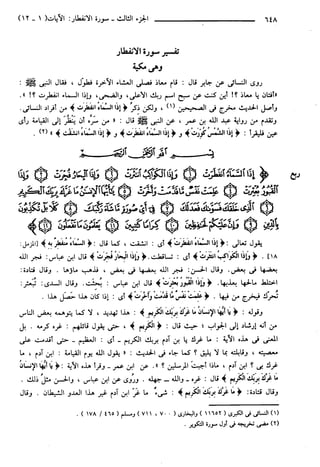 ٦٤٨ الجزء الثالث - سورة الانفطار: الآيات (١ - ١٢)
تفسير سورة الانفطار
وهى مكية
روى النسائى عن جابر قال : قام معاذ فصلى العشاء الآخرة فطول ، فقال النبى ﷺ :
«أفتان يا معاذ؟! أين كنت عن سبح اسم ربك الأعلى، والضحى، وإذا السماء انفطرت ؟! ».
وأصل الحديث مخرج فى الصحيحين (١) ، ولكن ذكر ﴿ إِذَا السَّمَاءُ انفَطَرَتْ ﴾ من أفراد النسائى.
وتقدم من رواية عبد الله بن عمر ، عن النبى ﷺ قال : « من سره أن ينظر إلى القيامة رأى
عين فليقرأ : ﴿ إِذَا الشَّمْسُ كُوِّرَتْ ﴾ و ﴿ إِذَا السَّمَاءُ انفَطَرَتْ ﴾ و ﴿ إِذَا السَّمَاءُ انشَقَّتْ ﴾ » (٢) .
بسم الله الرحمن الرحيم
ربع ﴿ إِذَا السَّمَاءُ انفَطَرَتْ ۝ وَإِذَا الْكَوَاكِبُ انتَثَرَتْ ۝ وَإِذَا الْبِحَارُ فُجِّرَتْ ۝ وَإِذَا
الْقُبُورُ بُعْثِرَتْ ۝ عَلِمَتْ نَفْسٌ مَّا قَدَّمَتْ وَأَخَّرَتْ ۝ يَا أَيُّهَا الْإِنسَانُ مَا غَرَّكَ بِرَبِّكَ الْكَرِيمِ
يقول تعالى : ﴿ إِذَا السَّمَاءُ انفَطَرَتْ ﴾ أى : انشقت ، كما قال : ﴿ السَّمَاءُ مُنفَطِرٌ بِهِ ﴾ [المزمل:
١٨] . ﴿ وَإِذَا الْكَوَاكِبُ انتَثَرَتْ ﴾ أى : تساقطت. ﴿ وَإِذَا الْبِحَارُ فُجِّرَتْ ﴾ قال ابن عباس: فجر الله
بعضها فى بعض. وقال الحسن: فجر الله بعضها فى بعض ، فذهب ماؤها . وقال قتادة:
اختلط مالحها بعذبها. ﴿ وَإِذَا الْقُبُورُ بُعْثِرَتْ ﴾ قال ابن عباس : بُحثت. وقال السدى: تُبعثر:
تُحرك فيخرج من فيها . ﴿ عَلِمَتْ نَفْسٌ مَّا قَدَّمَتْ وَأَخَّرَتْ ﴾ أى : إذا كان هذا حصل هذا .
وقوله : ﴿ يَا أَيُّهَا الْإِنسَانُ مَا غَرَّكَ بِرَبِّكَ الْكَرِيمِ ﴾ : هذا تهديد ، لا كما يتوهمه بعض الناس
من أنه إرشاد إلى الجواب ؛ حيث قال : ﴿ الْكَرِيمِ ﴾ ، حتى يقول قائلهم : غره كرمه . بل
المعنى فى هذه الآية : ما غرك يا بن آدم بربك الكريم - أى : العظيم - حتى أقدمت على
معصيته ، وقابلته بما لا يليق ؟ كما جاء فى الحديث : « يقول الله يوم القيامة : ابن آدم ، ما
غرك بى ؟ ابن آدم ، ماذا أجبتَ المرسلين ؟ ». عن ابن عمر - وقرأ هذه الآية : ﴿ يَا أَيُّهَا الْإِنسَانُ
مَا غَرَّكَ بِرَبِّكَ الْكَرِيمِ ﴾ قال : غره - والله - جهله . وروى عن ابن عباس ، والحسن مثل ذلك .
وقال قتادة: ﴿ مَا غَرَّكَ بِرَبِّكَ الْكَرِيمِ ﴾ : شىءٌ ما غرّ ابن آدم غير هذا العدو الشيطان . وقال
(١) النسائى فى الكبرى (١١٦٥٢) والبخارى (٧٠٠ ، ٧١١) ومسلم (٤٦٥ / ١٧٨) .
(٢) مضى تخريجه فى أول سورة التكوير .